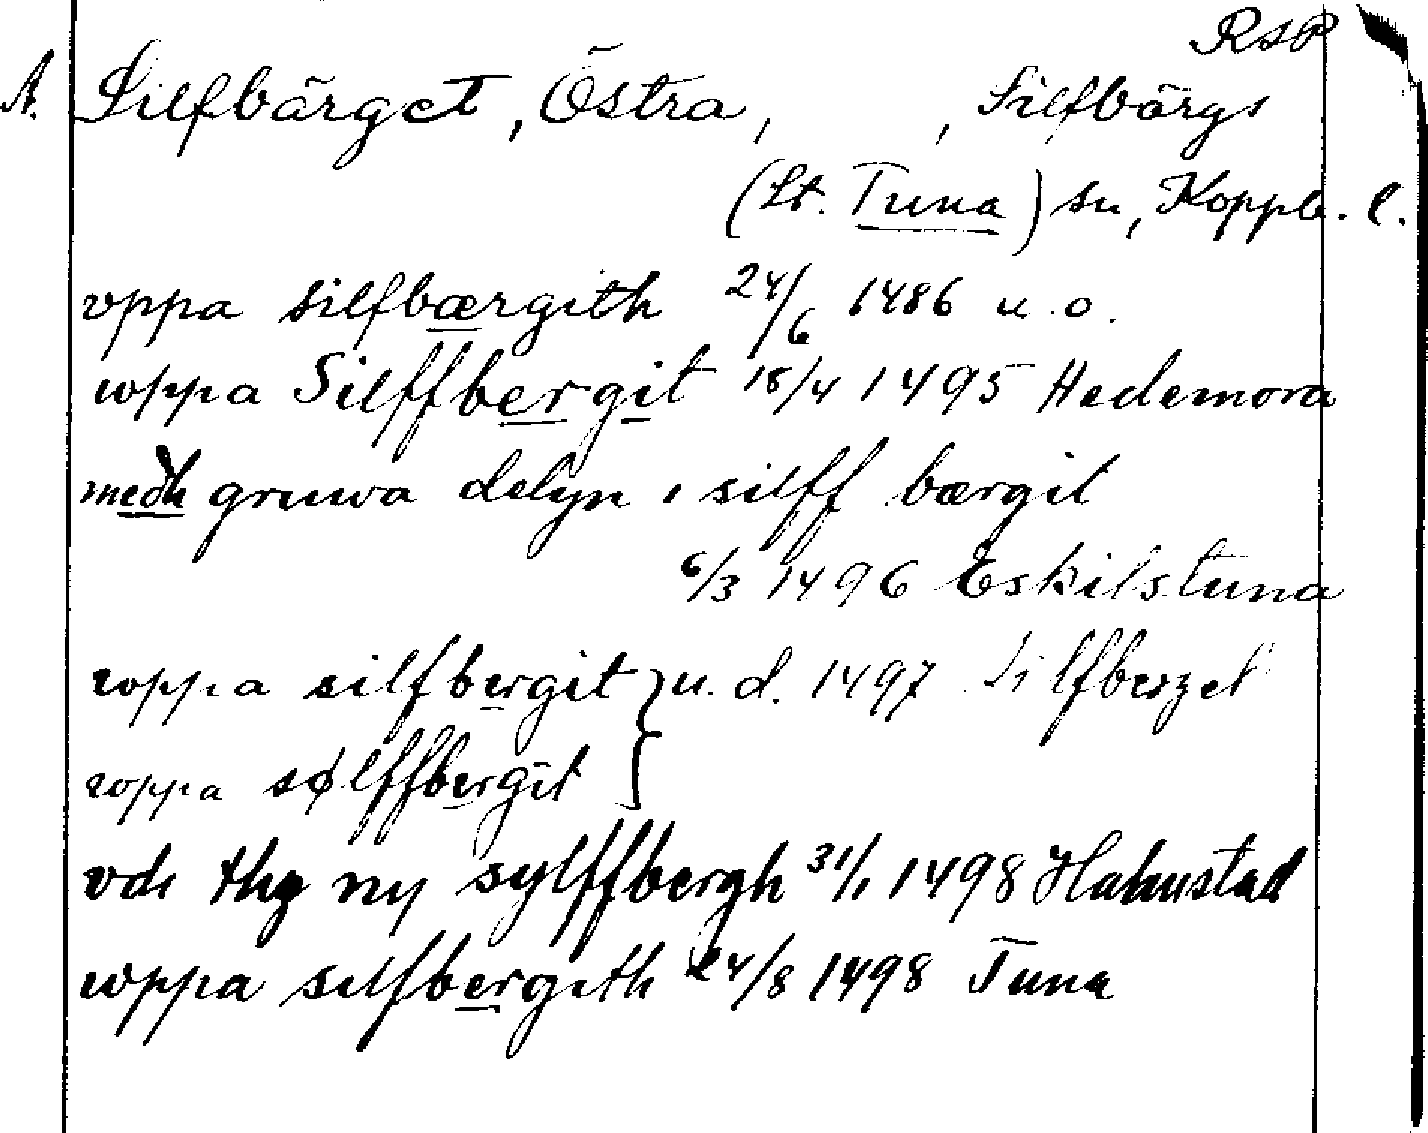 RSP
A. Silfbärget, Östra, , Silfbärgs
(St. Tuna) sn, Koppb. l.
vppa silfbærgith 24/6 1486 u.o.
wppa Silffbergit 18/4 1495 Hedemora
medh gruwa delyn i silff bærgit
6/3 1496 Eskilstuna
woppa silfbergit } u.d. 1497 Silfberget
woppa sølffbergit
vdi thz ny sylffbergh 31/1 1498 Halmstad
wppa silfbergith 24/8 1498 Tuna